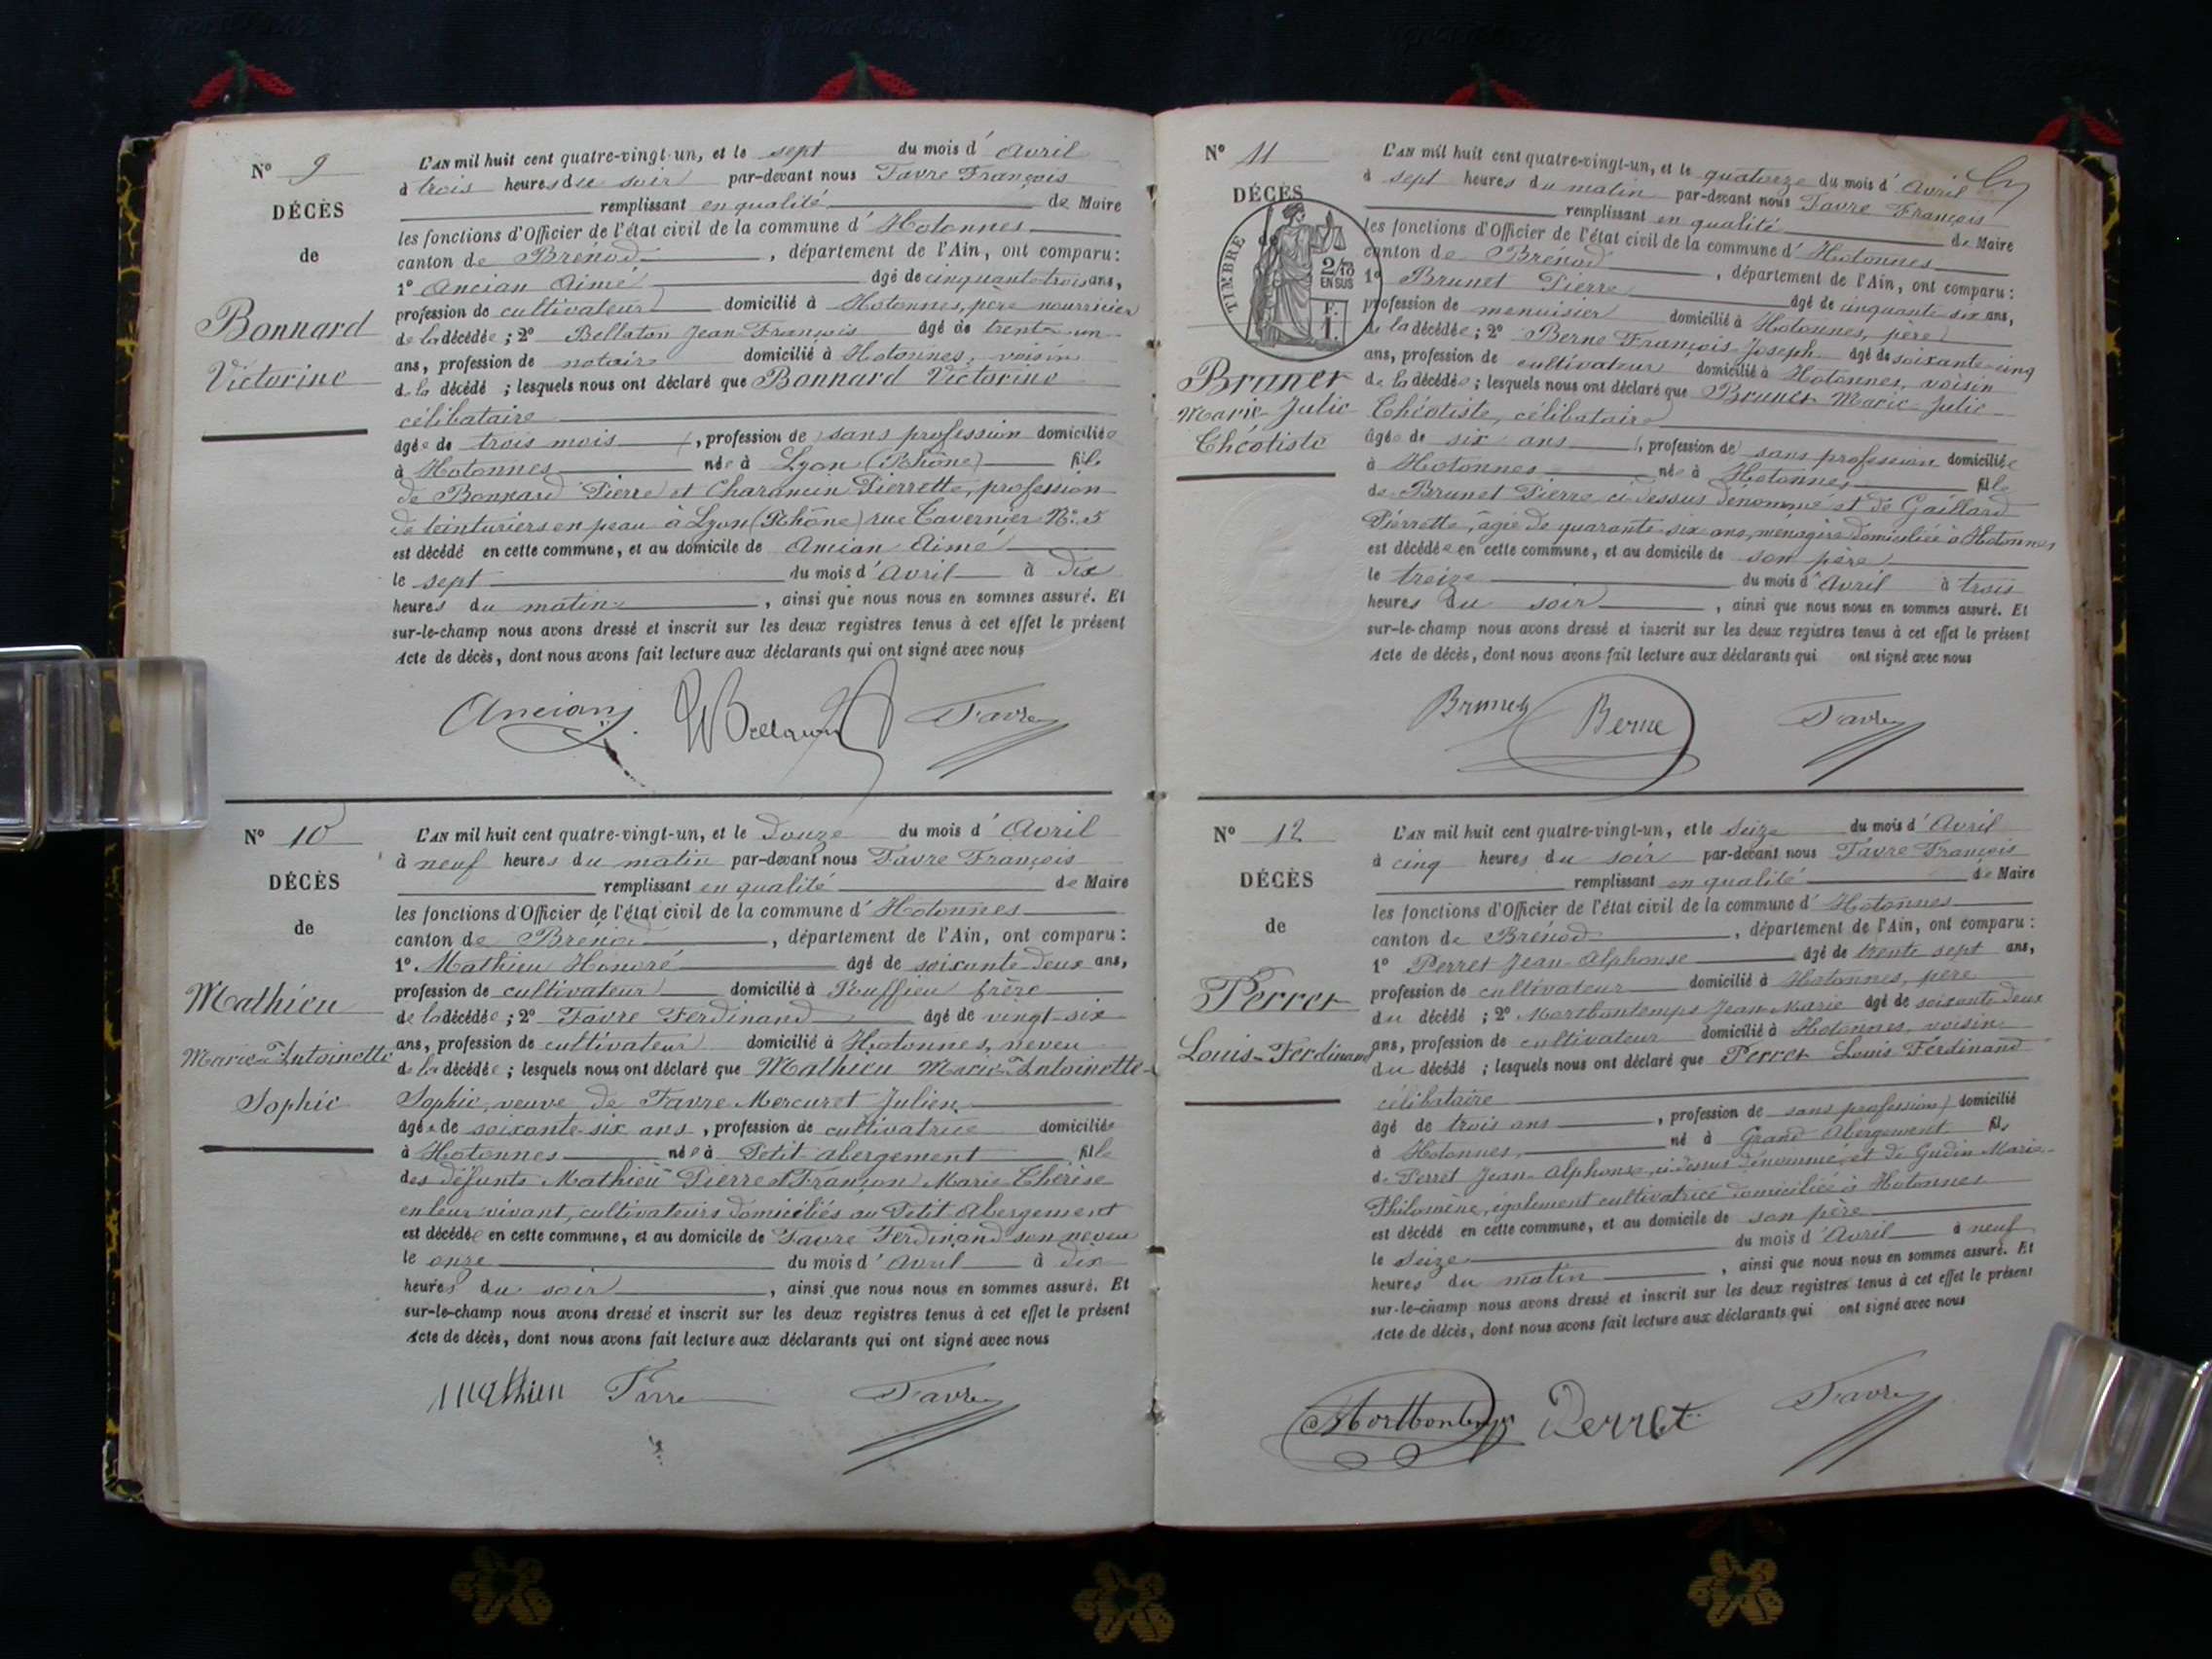 N° 9
DÉCÈS
de
Bonnard
Victorine
L'AN mil huit cent quatre-vingt-un, et le sept du mois d'Avril
à trois heures du soir par-devant nous Favre François
remplissant en qualité de Maire
les fonctions d'Officier de l'état civil de la commune d'Hotonnes
canton de Brénod, département de l'Ain, ont comparu:
1° Ancian Aimé âgé de cinquante trois ans,
profession de cultivateur domicilié à Hotonnes, père nourricier
de la décédée; 2° Bellaton Jean-François âgé de trente-un
ans, profession de notaire domicilié à Hotonnes, voisin
de la décédé; lesquels nous ont déclaré que Bonnard Victorine
célibataire
âgée de trois mois, profession de sans profession domiciliée
à Hotonnes née à Lyon (Rhône) fille
de Bonnard Pierre et Charancin Pierrette, profession
de teinturiers en peau à Lyon (Rhône) rue Tavernier N°. 5
est décédé en cette commune, et au domicile de Ancian Aimé
le sept du mois d'Avril à dix
heures du matin, ainsi que nous nous en sommes assuré. Et
sur-le-champ nous avons dressé et inscrit sur les deux registres tenus à cet effet le présent
Acte de décès, dont nous avons fait lecture aux déclarants qui ont signé avec nous
Ancian Favre
N° 10
DÉCÈS
de
Mathieu
Marie-Antoinette
Sophie
L'AN mil huit cent quatre-vingt-un, et le Douze du mois d'Avril
à neuf heures du matin par-devant nous Favre François
remplissant en qualité de Maire
les fonctions d'Officier de l'état civil de la commune d'Hotonnes
canton de Brénod, département de l'Ain, ont comparu:
1°. Mathieu Honoré âgé de soixante-deux ans,
profession de cultivateur domicilié à Rouffieu frère
de la décédée; 2° Favre Ferdinand âgé de vingt-six
ans, profession de cultivateur domicilié à Hotonnes, neveu
de la décédée; lesquels nous ont déclaré que Mathieu Marie-Antoinette-
Sophie, veuve de Favre Mercuret Julien
âgée de soixante-six ans, profession de cultivatrice domiciliée
à Hotonnes née à Petit abergement fille
des défunts Mathieu Pierre et Françon Marie-Thérèse
en leur vivant, cultivateurs domiciliés au Petit Abergement
est décédée en cette commune, et au domicile de Favre Ferdinand son neveu
le onze du mois d'Avril à dix
heures du soir, ainsi que nous nous en sommes assuré. Et
sur-le-champ nous avons dressé et inscrit sur les deux registres tenus à cet effet le présent
Acte de décès, dont nous avons fait lecture aux déclarants qui ont signé avec nous
Mathieu Favre Favre
N° 11
DÉCÈS
de
TIMBRE
2/10
EN SUS
F.
1.
Brunet
Marie-Julie
Théotiste
L'AN mil huit cent quatre-vingt-un, et le quatorze du mois d'Avril
à sept heures du matin par-devant nous Favre François
remplissant en qualité de Maire
les fonctions d'Officier de l'état civil de la commune d'Hotonnes
canton de Brénod, département de l'Ain, ont comparu:
1° Brunet Pierre âgé de cinquante-six ans,
profession de menuisier domicilié à Hotonnes, père
de la décédée; 2° Berne François-Joseph âgé de soixante-cinq
ans, profession de cultivateur domicilié à Hotonnes, voisin
de la décédée; lesquels nous ont déclaré que Brunet Marie-Julie
Théotiste, célibataire
âgée de six ans, profession de sans profession domiciliée
à Hotonnes née à Hotonnes fille
de Brunet Pierre ci-dessus dénommé et de Gaillard
Pierrette, âgée de quarante-six ans, ménagère domiciliée à Hotonnes
est décédée en cette commune, et au domicile de son père
le treize du mois d'Avril à trois
heures du soir, ainsi que nous nous en sommes assuré. Et
sur-le-champ nous avons dressé et inscrit sur les deux registres tenus à cet effet le présent
Acte de décès, dont nous avons fait lecture aux déclarants qui ont signé avec nous
Brunet Berne Favre
N° 12
DÉCÈS
de
Perret
Louis-Ferdinand
L'AN mil huit cent quatre-vingt-un, et le Seize du mois d'Avril
à cinq heures du soir par-devant nous Favre François
remplissant en qualité de Maire
les fonctions d'Officier de l'état civil de la commune d'Hotonnes
canton de Brénod, département de l'Ain, ont comparu:
1° Perret Jean-Alphonse âgé de trente sept ans,
profession de cultivateur domicilié à Hotonnes, père
du décédé; 2° Mortbontemps Jean-Marie âgé de soixante-deux
ans, profession de cultivateur domicilié à Hotonnes, voisin
du décédé; lesquels nous ont déclaré que Perret Louis Ferdinand
célibataire
âgé de trois ans, profession de sans profession domicilié
à Hotonnes, né à Grand Abergement fils
de Perret Jean-Alphonse, ci-dessus dénommé, et de Gudin Marie-
Philomène, également cultivatrice domiciliée à Hotonnes
est décédé en cette commune, et au domicile de son père
le Seize du mois d'Avril à neuf
heures du matin, ainsi que nous nous en sommes assuré. Et
sur-le-champ nous avons dressé et inscrit sur les deux registres tenus à cet effet le présent
Acte de décès, dont nous avons fait lecture aux déclarants qui ont signé avec nous
Mortbontemps Perret Favre